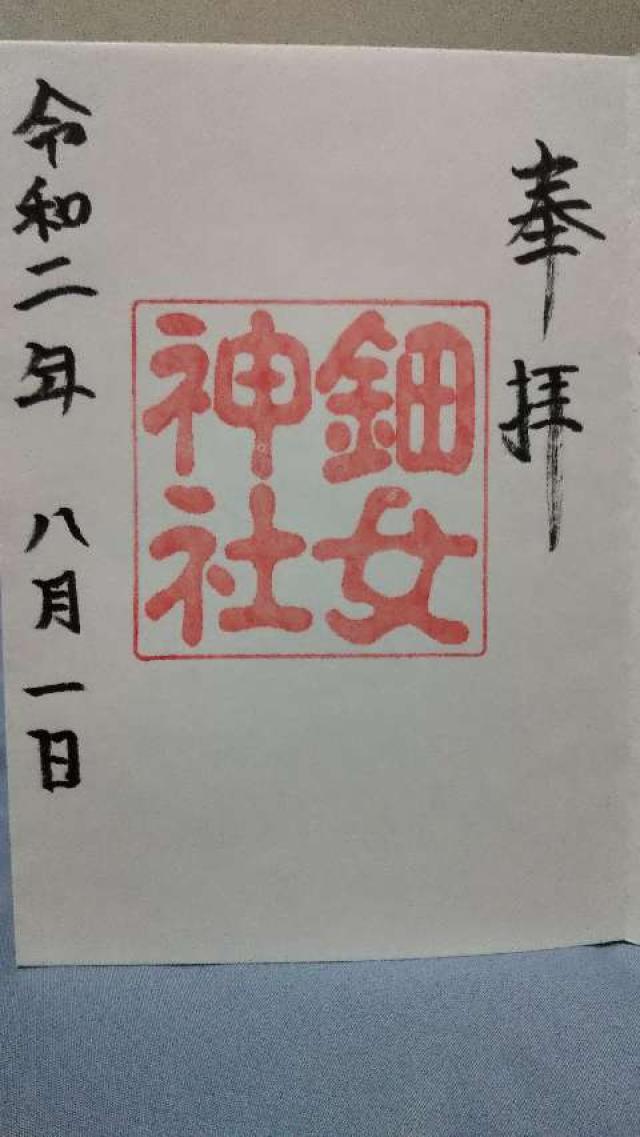 奉拝
鈿女
神社
令和二年 八月一日